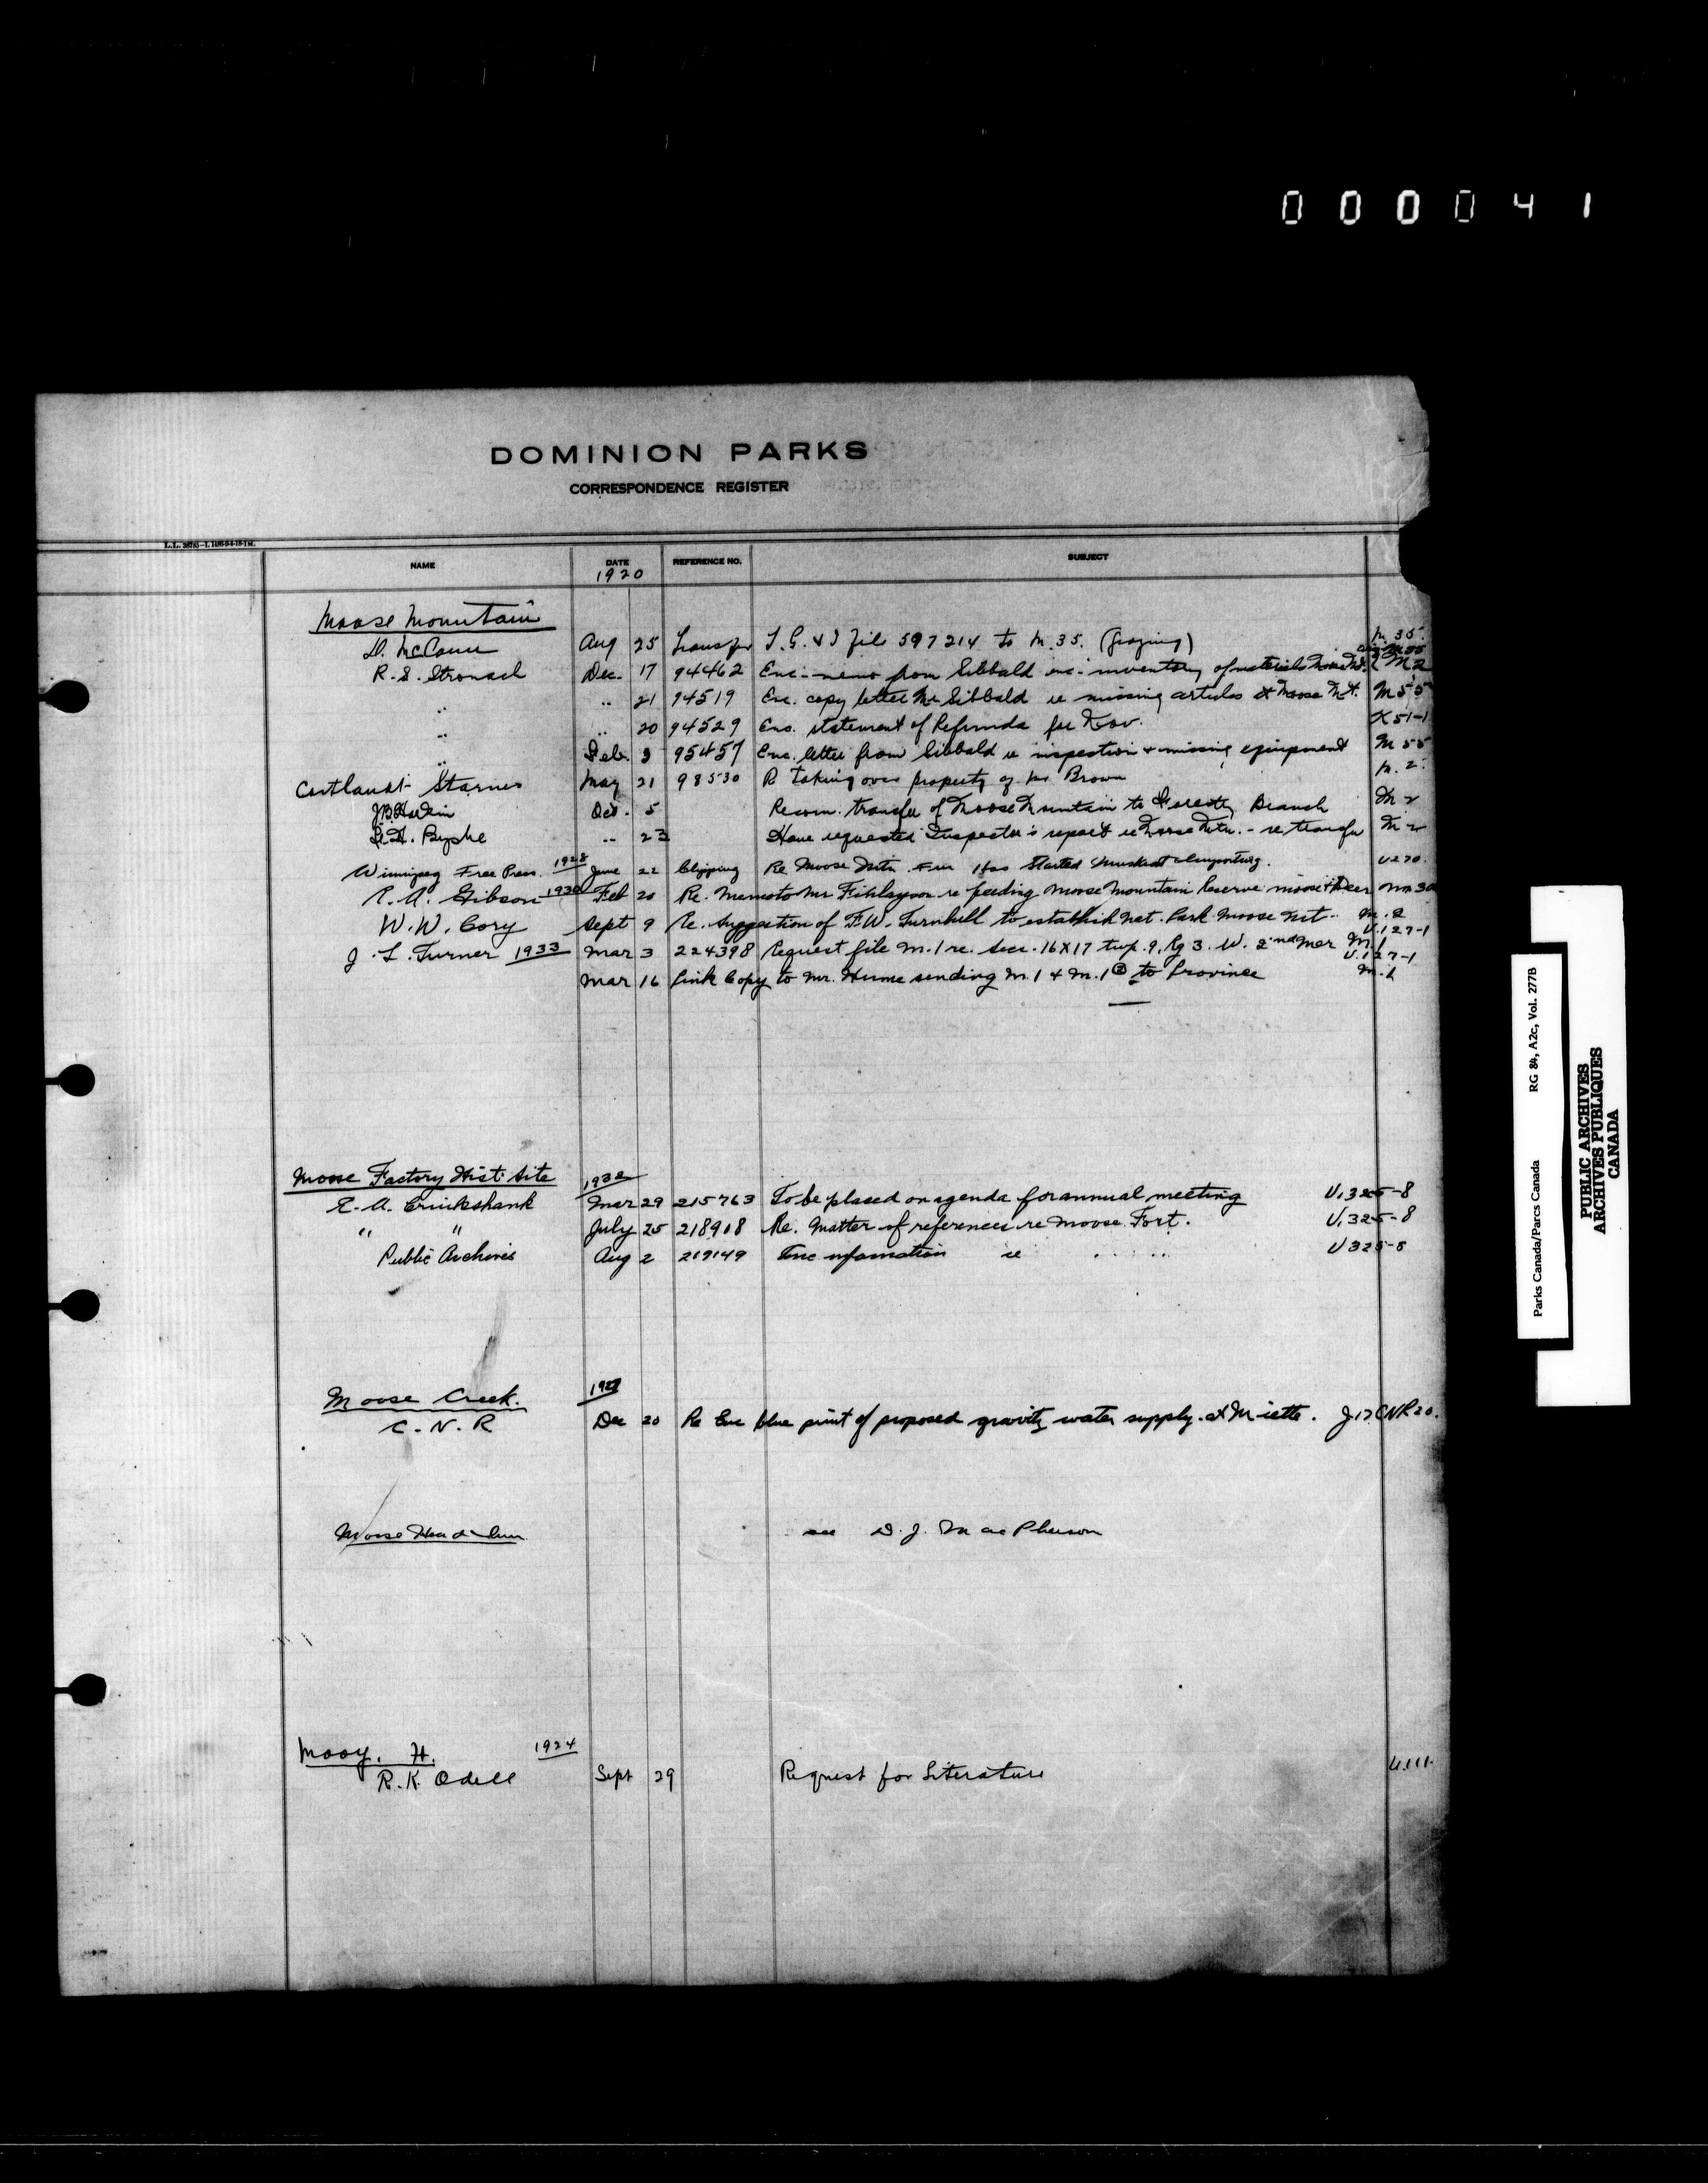 000041
DOMINION PARKS
CORRESPONDENCE REGISTER
NAME DATE REFERENCE NO. SUBJECT
1920
Moose Mountain
D. McCann Aug 25 Transfer T. G. & I file 597214 to M. 35. (Grazing) M. 35.
R. S. Stronach Dec. 17 94462 Enc. memo from Sibbald enc. inventory of materials Moose Mt. M 2
" " 21 94519 Enc. copy letter Mr Sibbald re missing articles at Moose Mt. M 55
" " 20 94529 Enc. statement of Refunds for Nov. K 51-1
" Feb. 3 95457 Enc. letter from Sibbald re inspection & missing equipment M 55
Cortlandt Starnes May 21 98530 R taking over property of Mr Brown M. 2.
J B Harkin Oct. 5 Recom. transfer of Moose Mountain to Forestry Branch M 2
" 23 Have requested Inspector's report re Moose Mtn. - re transfer M 2
Winnipeg Free Press. 1928 June 22 Clipping Re Moose Mtn Has Started Muskrat U270.
R. A. Gibson 1930 Feb 20 Re. Memo to Mr Finlayson re feeding Moose Mountain Reserve moose & Deer
W. W. Cory Sept 9 Re. Suggestion of F. W. Turnbull to establish Nat. Park Moose Mt. M. 2
U.127-1
J. L. Turner 1933 Mar 3 224398 Request file M. 1 re. Secs. 16 X 17 twp. 9. Rg 3. W. 2nd Mer M. 1
U.127-1
Mar 16 Pink Copy to Mr. Hume sending M. 1 & M. 1 ② to Province M. 1
Moose Factory Hist. Site 1932
E. A. Cruikshank Mar 29 215763 To be placed on agenda for annual meeting U.325-8
" " July 25 218918 Re. Matter of references re Moose Fort. U.325-8
Public Archives Aug 2 219149 Enc information re " " U 325-8
Moose Creek.
C. N. R Dec 20 Re Enc blue print of proposed gravity water supply at Miette. J 17. CNR 20.
Moose Head Inn see D. J. MacPherson
Mooy, H. 1924
R. K. Odell Sept 29 Request for Literature U.111.
Parks Canada/Parcs Canada RG 84, A2c, Vol. 277B
PUBLIC ARCHIVES
ARCHIVES PUBLIQUES
CANADA